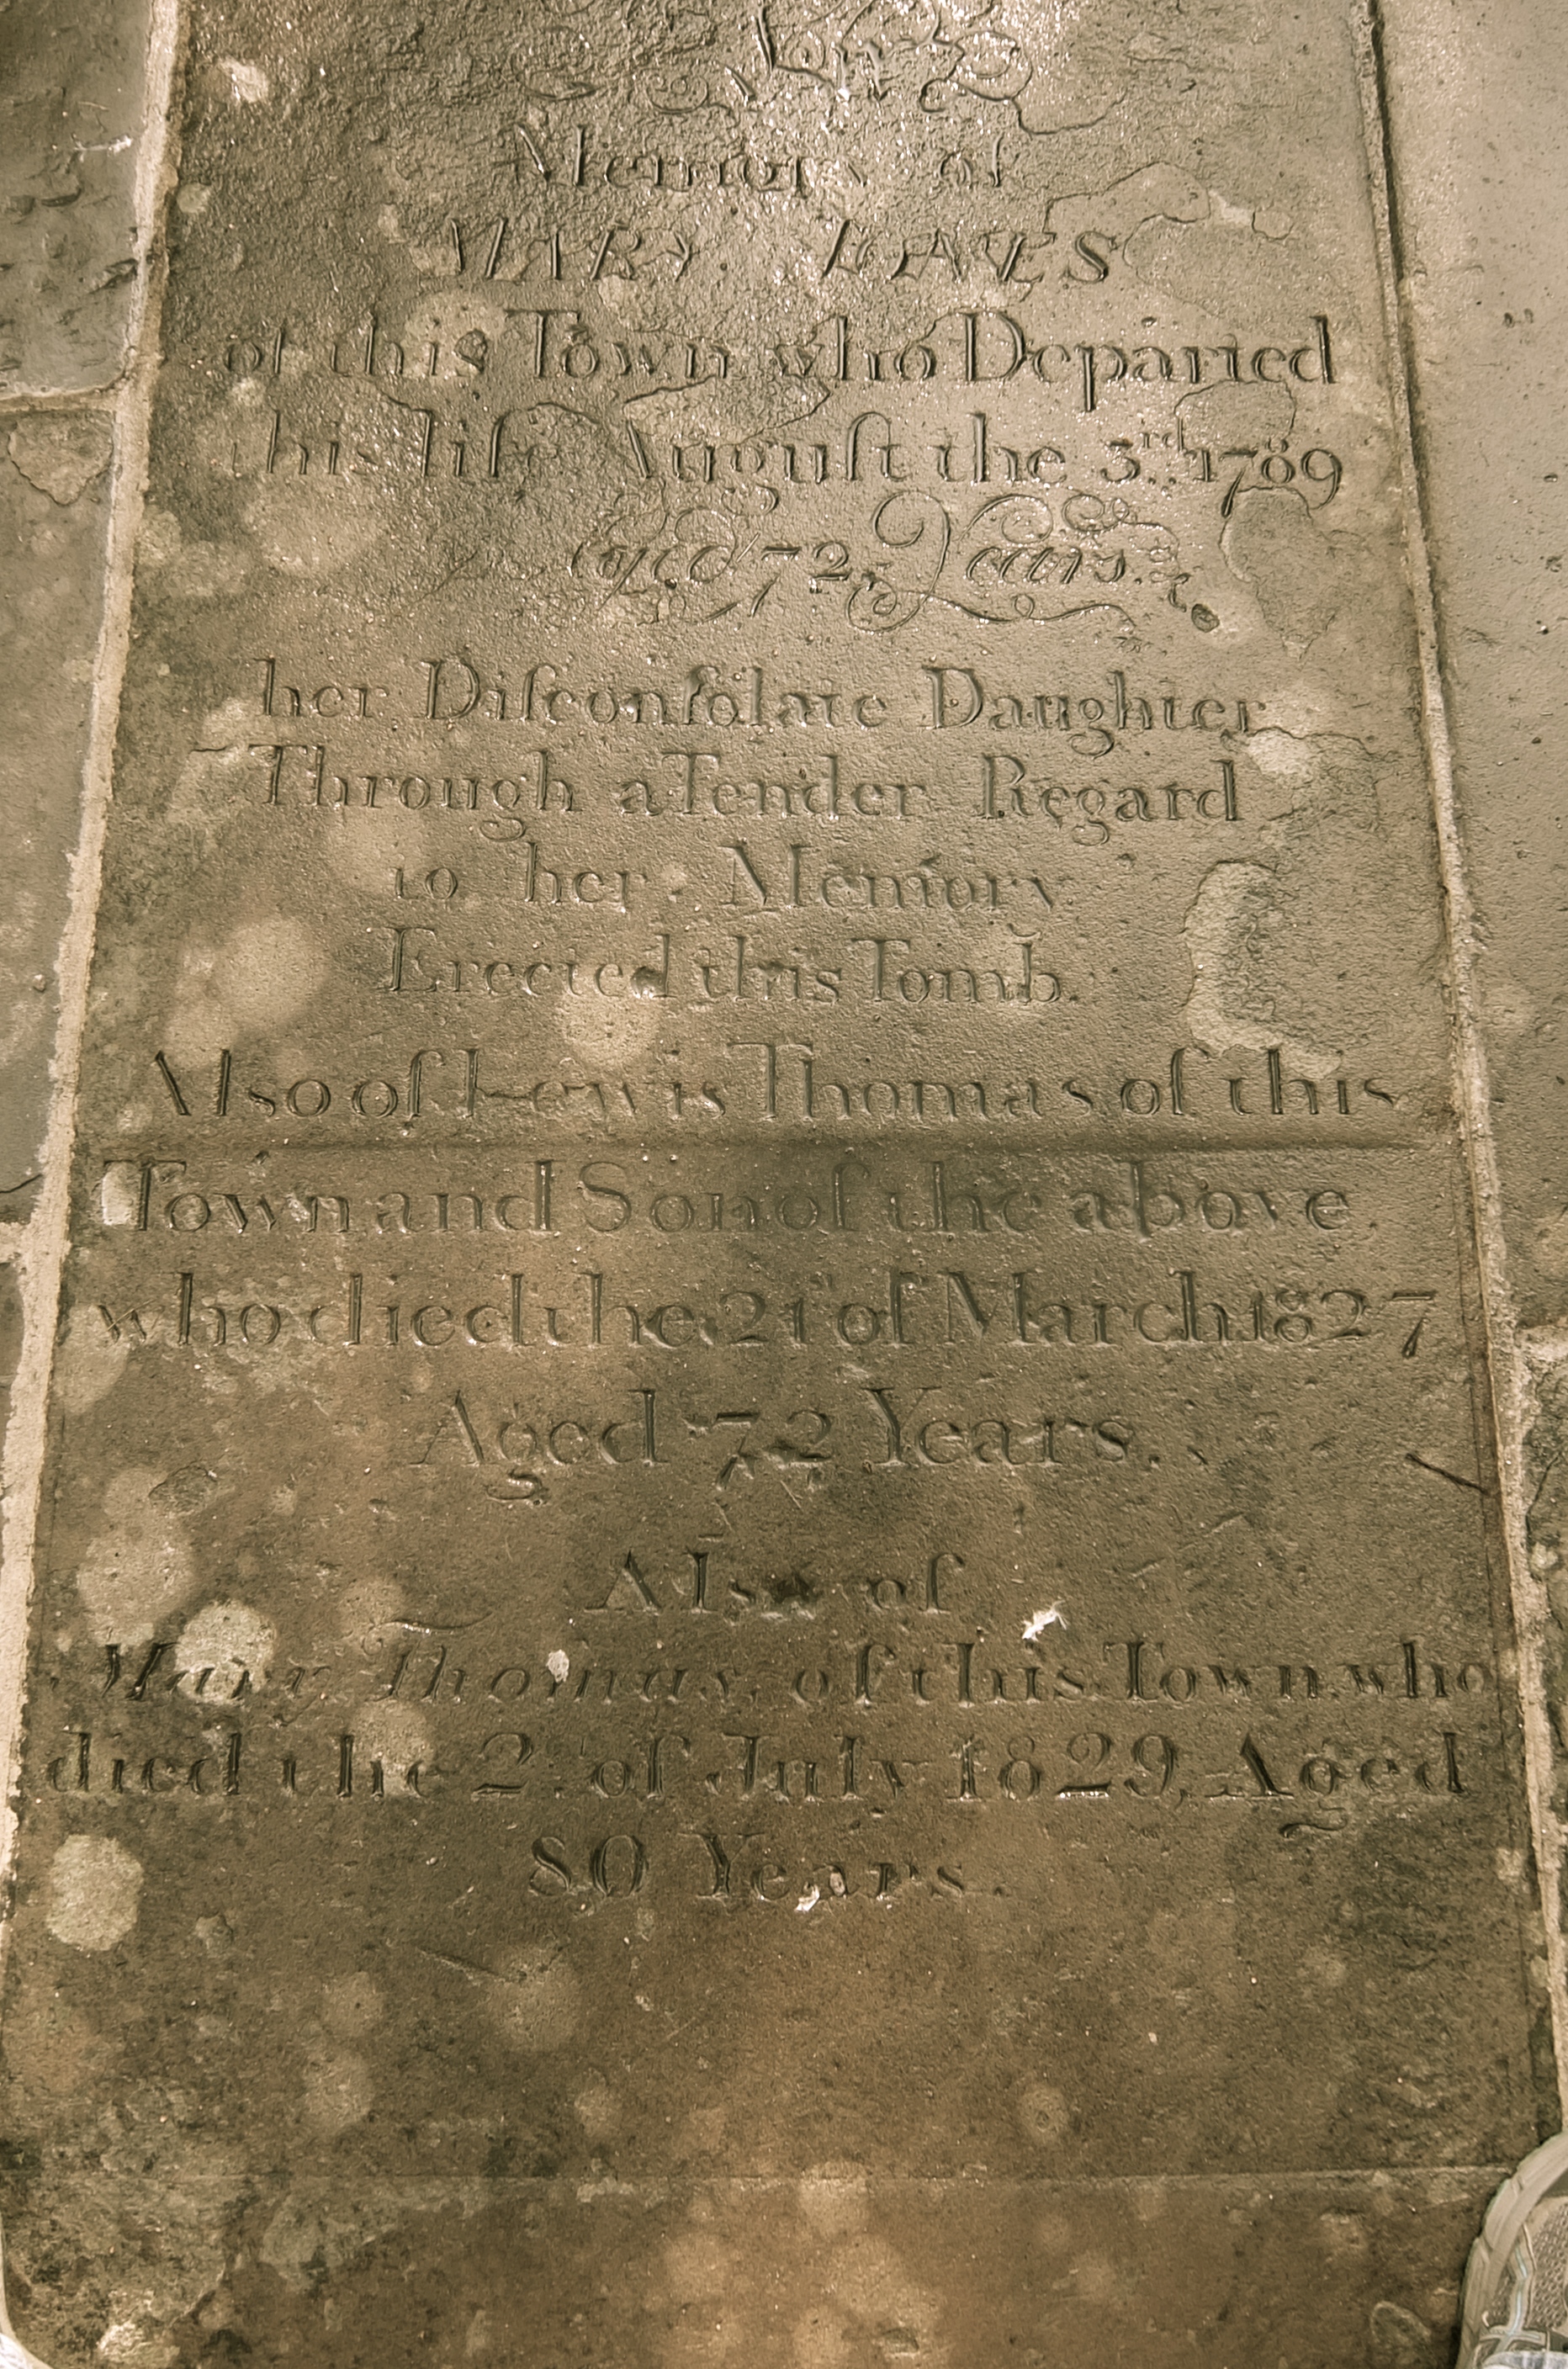 In
Memory of
MARY EAVES
of this Town who Departed
this life Auguſt the 3rd. 1789
Aged 72 Years.
her Diſconſolate Daughter
Through a Tender Regard
to her Memory
Erected this Tomb.
Also of Lewis Thomas of this
Town and Son of the above
who died the 21 of March 1827
Aged 72 Years.
Also of
Mary Thomas, of this Town who
died the 2 of July 1829, Aged
80 Years.